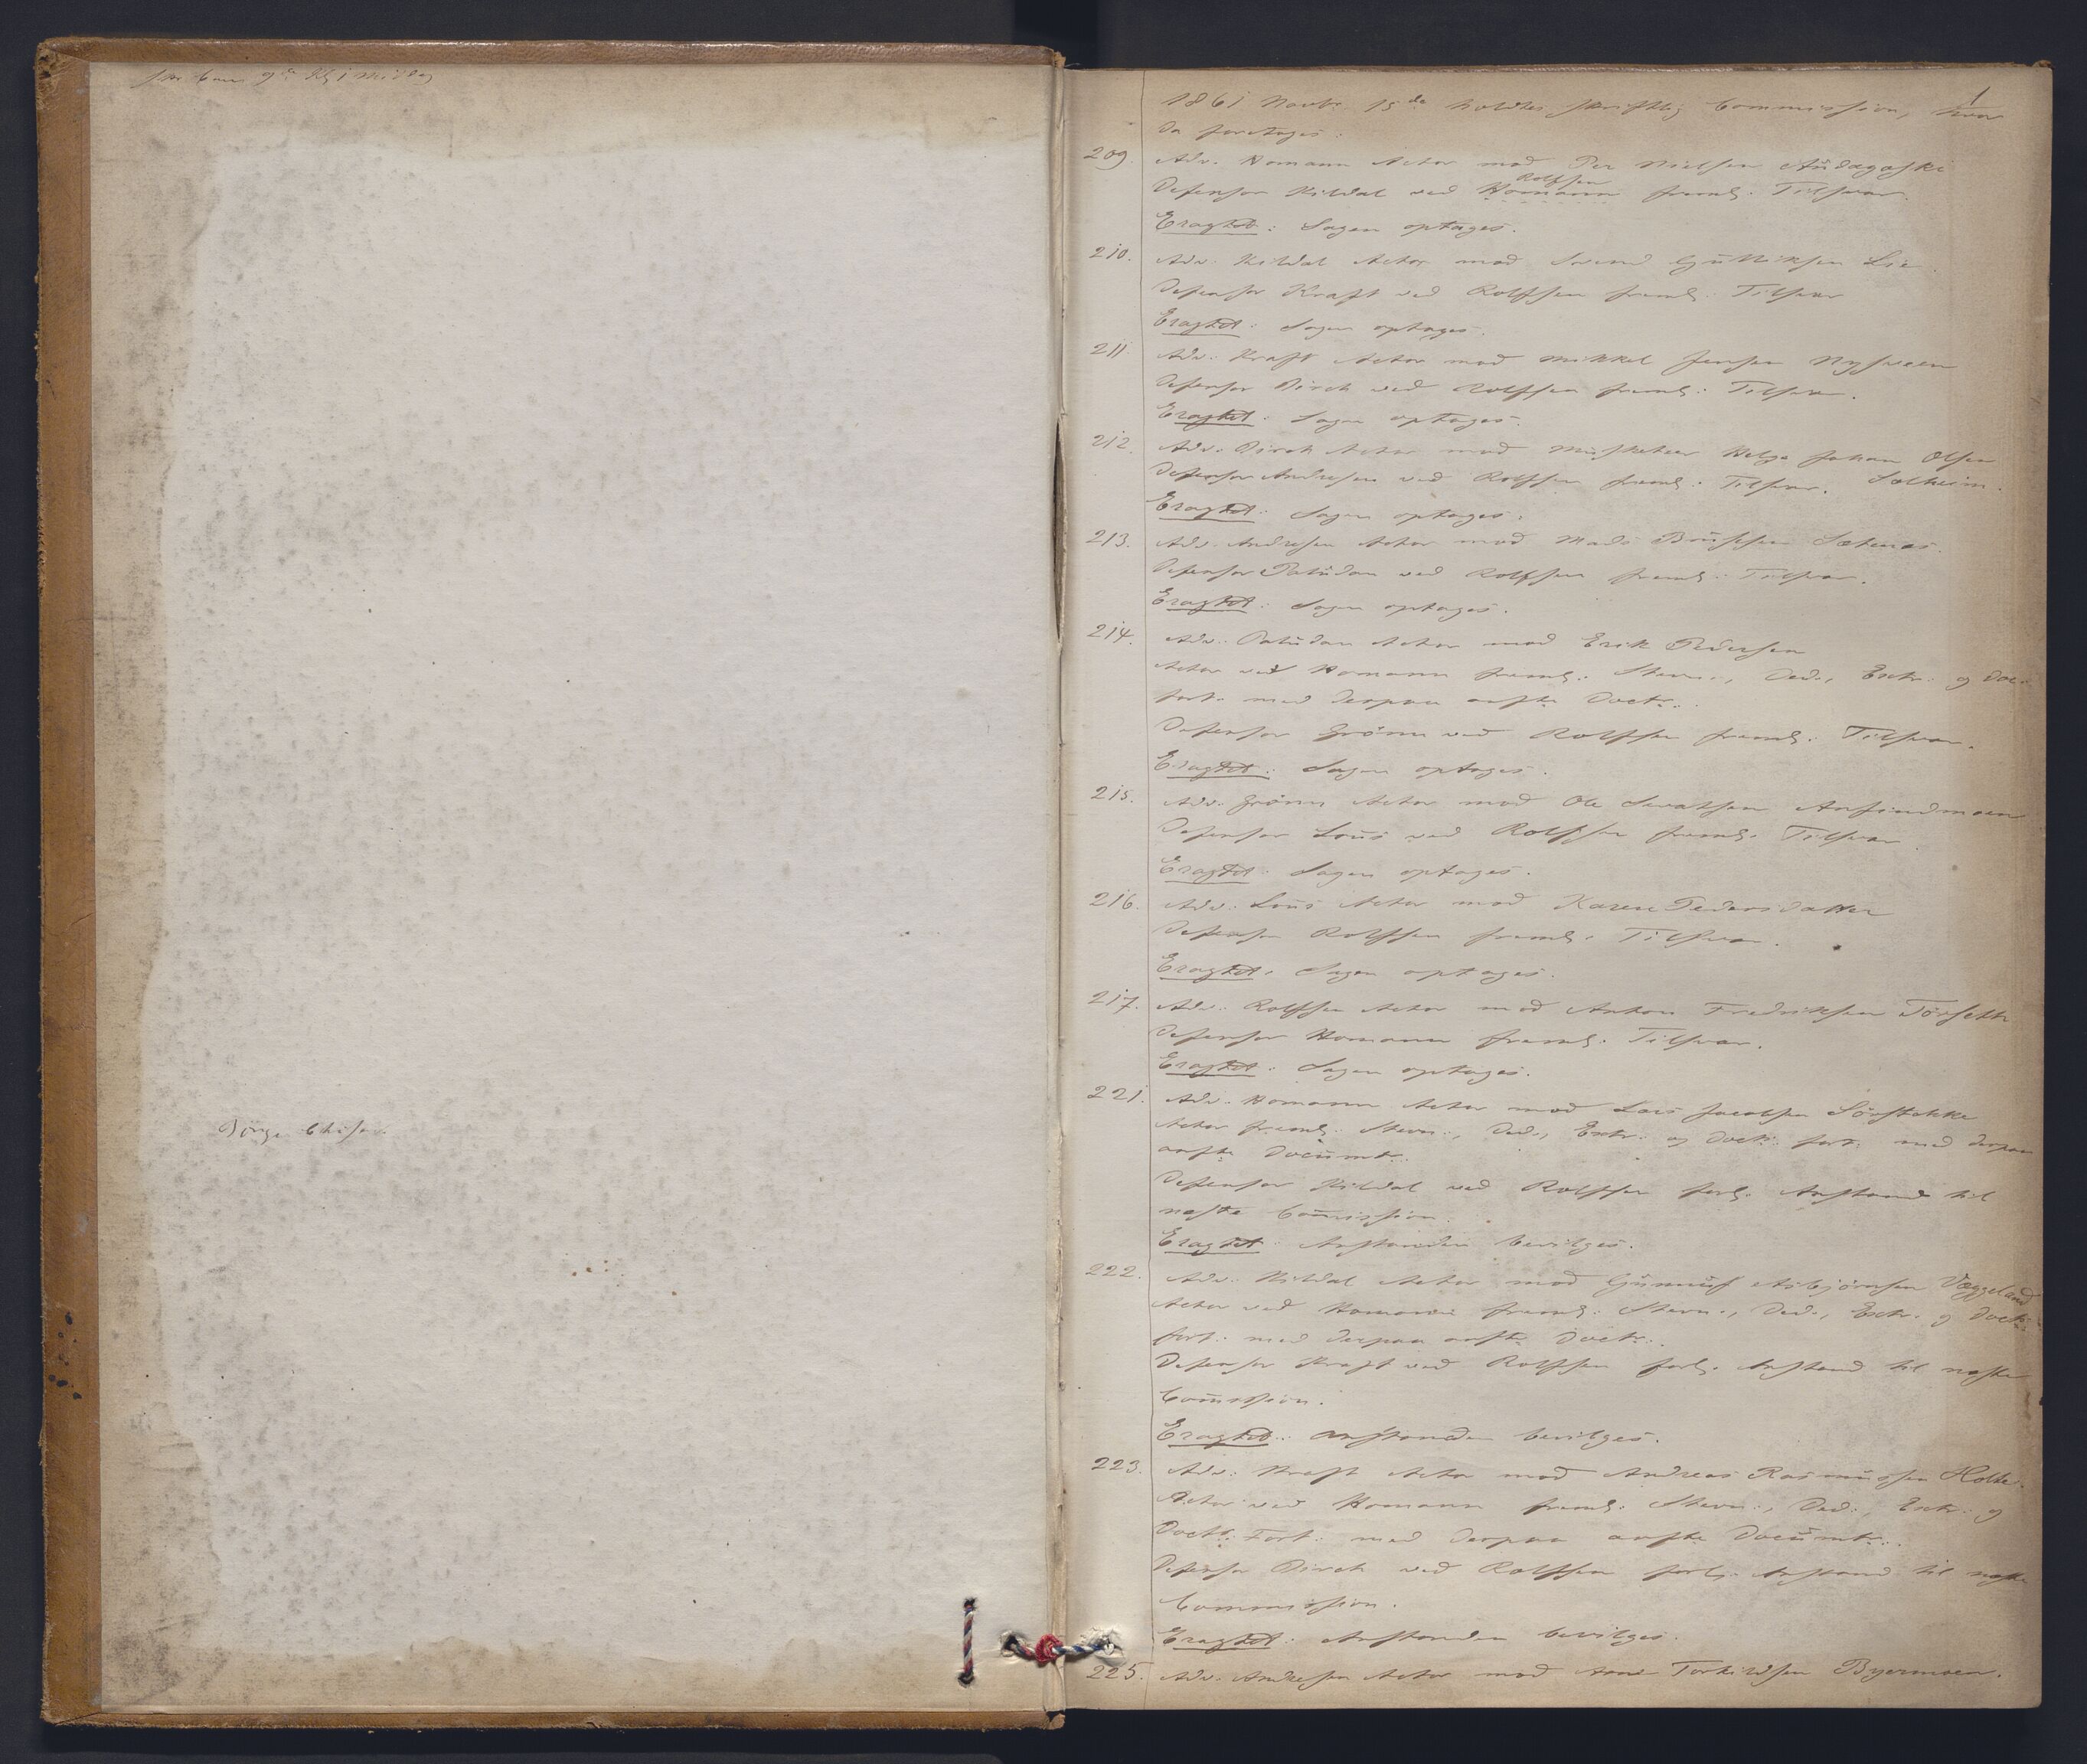 Børge Chris
1
1861 Novbr 15de holdtes skriftlig Commission, hvor
da foretoges:
209. Adv. Homann Actor mod Per Nielsen
Defensor Kildal ved Homann Rolfsen freml. Tilsvar.
Eragtet: Sagen optages.
210. Adv. Kildal Actor mod Svend Gulliksen Lie
Defensor Kraft ved Rolfsen freml. Tilsvar
Eragtet: Sagen optages.
211 Adv. Kraft Actor mod Mikkel Jensen Nysveen
Defensor Birch ved Rolfsen freml. Tilsvar.
Eragtet: Sagen optages.
212. Adv. Birch Actor mod Musketeer Helge Johan Olsen
Defensor Andresen ved Rolfsen freml. Tilsvar. Solheim.
Eragtet: Sagen optages.
213. Adv. Andresen Actor mod Mads
Defensor Paludan ved Rolfsen freml. Tilsvar.
Eragtet: Sagen optages.
214. Adv. Paludan Actor mod Erik Pedersen
Actor ved Homann freml. Stevn., Ded., Extr. og Doc.
fort. med derpaa anfte Doctr.
Defensor Grönn ved Rolfsen freml. Tilsvar.
Eragtet: Sagen optages.
215. Adv. Grönn Actor mod Ole Sivatsen Anfindmoen
Defensor Lous ved Rolfsen freml. Tilsvar
Eragtet: Sagen optages.
216. Adv. Lous Actor mod Karen Pedersdatter
Defensor Rolfsen freml. Tilsvar.
Eragtet. Sagen optages.
217. Adv. Rolfsen Actor mod Anton Fredriksen Törseth
Defensor Homann freml. Tilsvar.
Eragtet: Sagen optages.
221. Adv. Homann Actor mod Lars Jacobsen Sörstokke
Actor freml. Stevn., Ded., Extr. og Doctr. fort. med derpaa
anfte Documtr.
Defensor Kildal ved Rolfsen forl. Anstand til
næste Commission.
Eragtet: Anstanden bevilges.
222. Adv. Kildal Actor mod Gunnuf Asbjörnsen Væggeland
Actor ved Homann freml. Stevn., Ded., Extr. og Doctr.
fort. med derpaa anfte Doctr.
Defensor Kraft ved Rolfsen forl. Anstand til næste
Commission.
Eragtet: Anstanden bevilges.
223. Adv. Kraft Actor mod Andreas Rasmussen Holte.
Actor ved Homann freml. Stevn., Ded., Extr. og
Doctr. Fort. med derpaa anfte Documtr.
Defensor Birch ved Rolfsen forl. Anstand til næste
Commission.
Eragtet: Anstanden bevilges.
225. Adv. Andresen Actor mod Torkildsen Byermoen.